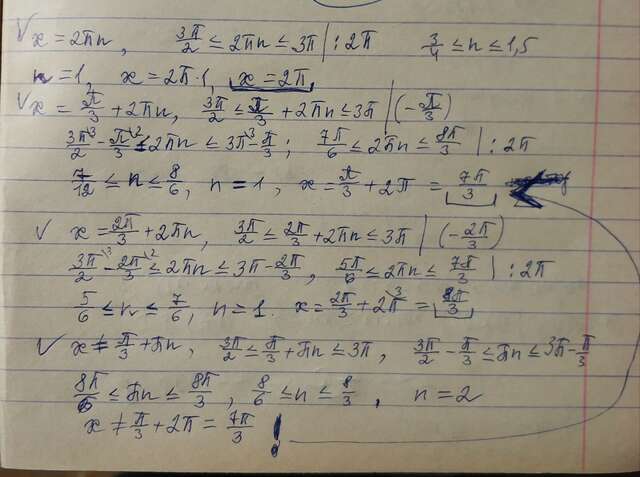 √ x = 2πn, 3π/2 ≤ 2πn ≤ 3π | : 2π 3/4 ≤ n ≤ 1,5
n = 1, x = 2π·1, x = 2π,
√ x = π/3 + 2πn, 3π/2 ≤ π/3 + 2πn ≤ 3π | (-π/3)
3π/2 \3 - π/3 \2 ≤ 2πn ≤ 3π \3 - π/3 ; 7π/6 ≤ 2πn ≤ 8π/3 | : 2π
7/12 ≤ n ≤ 8/6, n = 1, x = π/3 + 2π = 7π/3
√ x = 2π/3 + 2πn, 3π/2 ≤ 2π/3 + 2πn ≤ 3π | (-2π/3)
3π/2 \3 - 2π/3 \2 ≤ 2πn ≤ 3π - 2π/3, 5π/6 ≤ 2πn ≤ 7π/3 | : 2π
5/6 ≤ n ≤ 7/6, n = 1. x = 2π/3 + 2π \3 = 8π/3
√ x ≠ π/3 + πn, 3π/2 ≤ π/3 + πn ≤ 3π, 3π/2 - π/3 ≤ πn ≤ 3π - π/3
8π/6 ≤ πn ≤ 8π/3, 8/6 ≤ n ≤ 8/3, n = 2
x ≠ π/3 + 2π = 7π/3 !